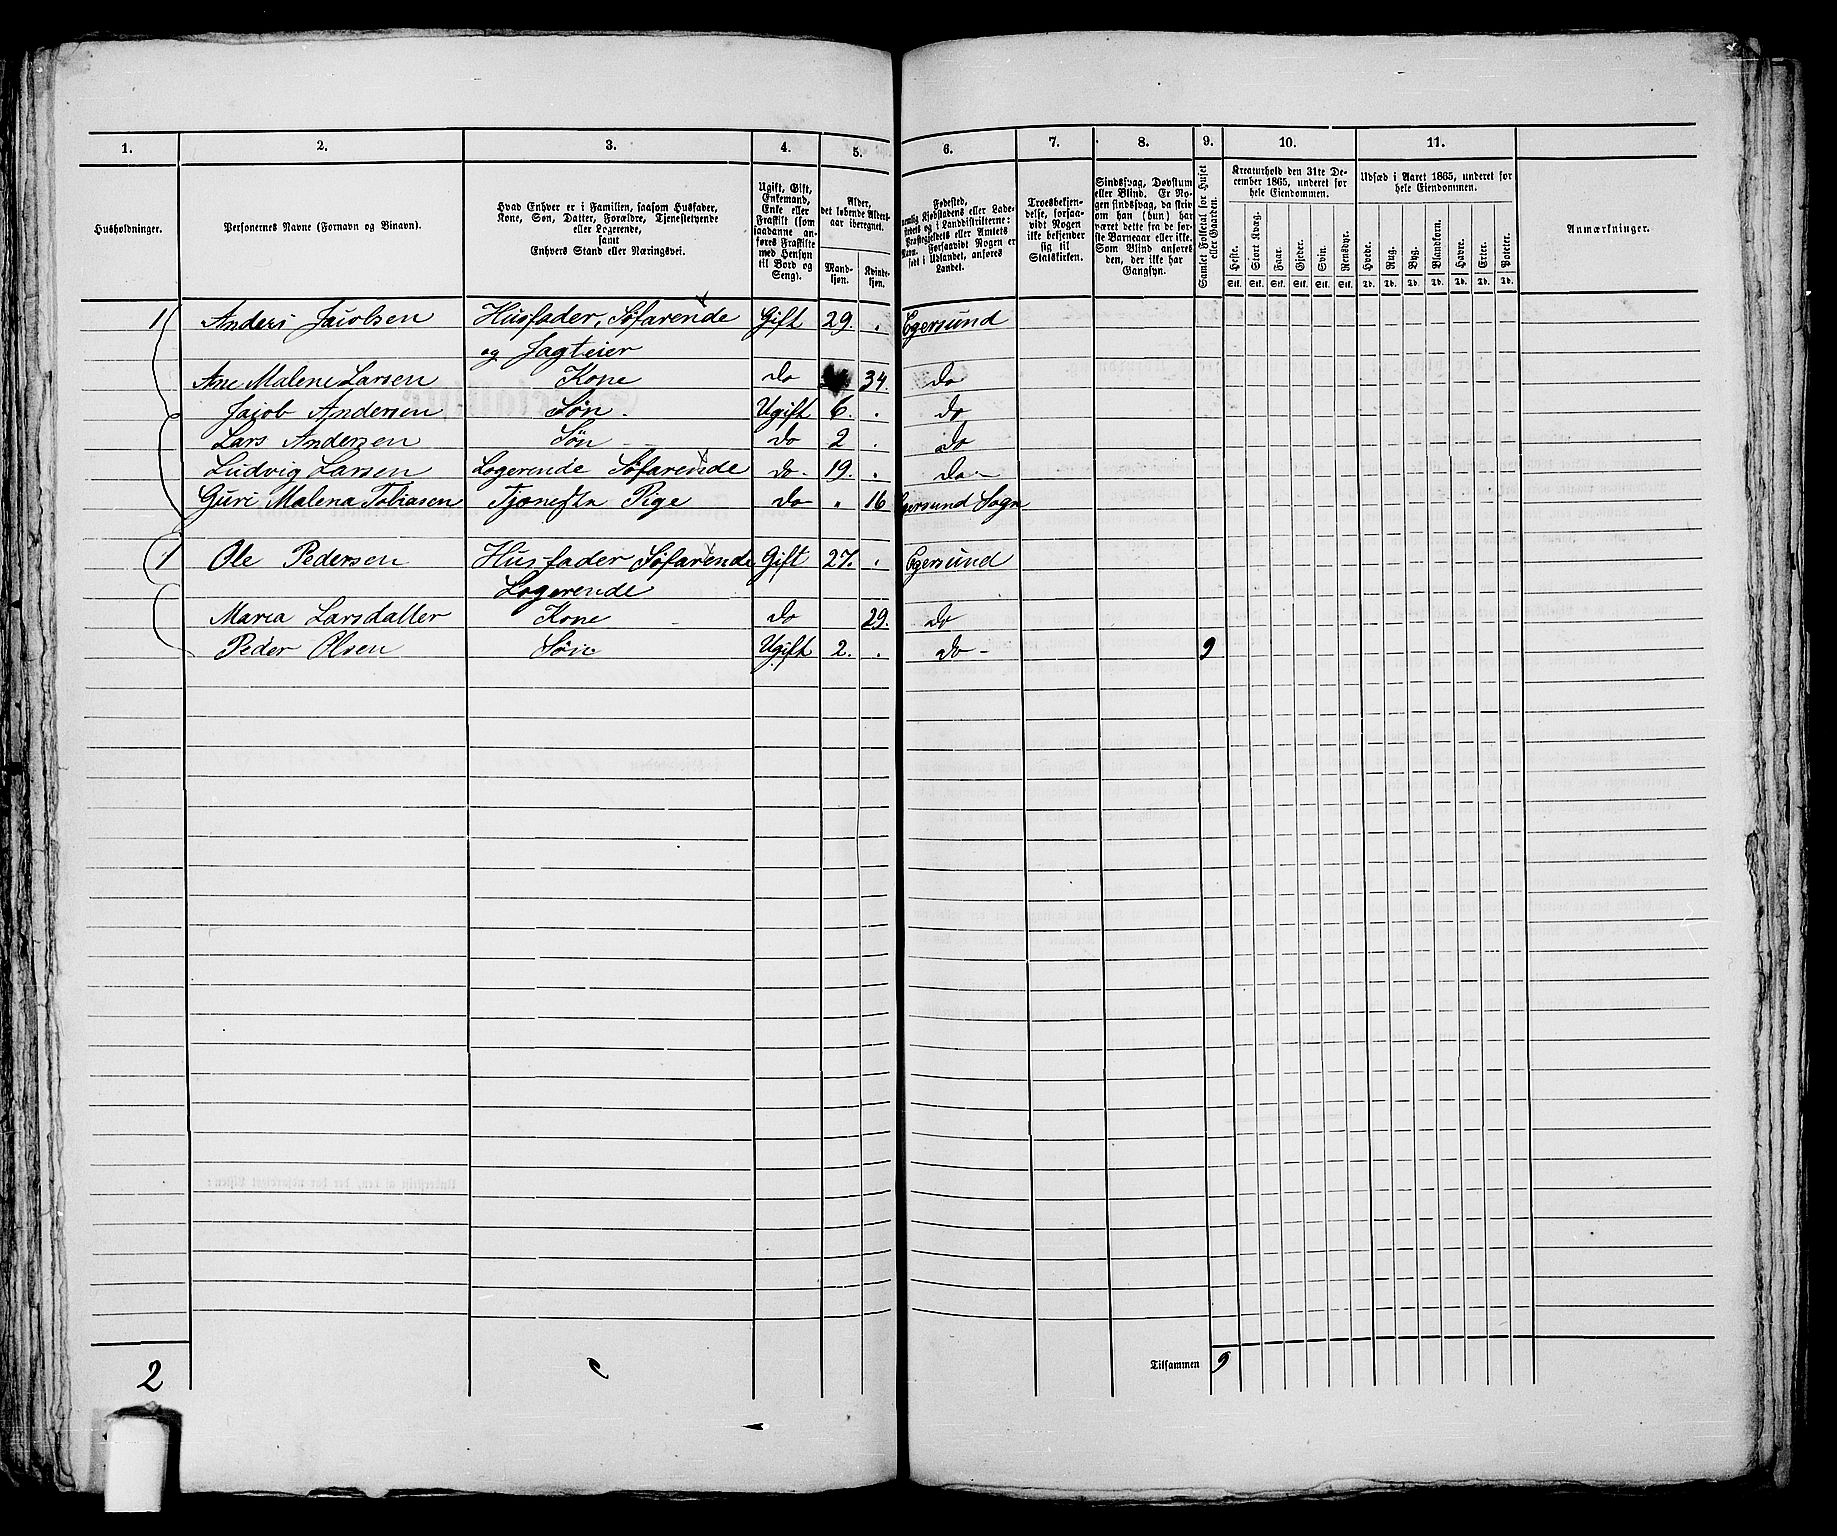 1. 2. 3. 4. 5. 6. 7. 8. 9. 10. 11.
Husholdninger.
Personernes Navne (Fornavn og Binavn).
Hvad Enhver er i Familien, saasom Husfader,
Kone, Søn, Datter, Forældre, Tjenestetyende
eller Logerende,
samt
Enhvers Stand eller Næringsvei.
Ugift, Gift,
Enkemand,
Enke eller
Fraskilt (som
saadanne an-
føres Fraskilte
med Hensyn
til Bord og
Seng).
Alder,
det løbende Alders-
aar iberegnet.
Mand-
kjøn.
Kvinde-
kjøn.
Fødested,
nemlig Kjøbstadens eller Lade-
stedets og i Landdistrikterne:
Præstegjeldets eller Amtets
Navn. Forsaavidt Nogen er
født i Udlandet, anføres
Landet.
Troesbekjen-
delse, forsaa-
vidt Nogen
ikke bekjender
sig til
Statskirken.
Sindssvag, Døvstum
eller Blind. Er No-
gen sindssvag, da skriv
om han (hun) har
været dette fra de før-
ste Barneaar eller ikke.
Som Blind anføres
den, der ikke har
Gangsyn.
Samlet Folketal for Huset
eller Gaarden.
Kreaturhold den 31te De-
cember 1865, underet for
hele Eiendommen.
Heste. Stort Kvæg. Faar. Gjeder. Svin. Rensdyr.
Stk. Stk. Stk. Stk. Stk. Stk.
Udsæd i Aaret 1865, underet for
hele Eiendommen.
Hvede. Rug. Byg. Blandkorn. Havre. Erter. Poteter.
Td. Td. Td. Td. Td. Td. Td.
Anmærkninger.
1 Anders Jacobsen Husfader, Søfarende Gift 29. Egersund
og Jagteier
Ane Malene Larsen Kone do 34. do
Jacob Andersen Søn. Ugift 6. do
Lars Andersen Søn do 2 do
Ludvig Larsen Logerende Søfarende do 19. do
Guri Malena Tobiasen Tjenestr Pige do 16 Egersund Sogn
1 Ole Pedersen Husfader Søfarende Gift 27. Egersund
Logerende
Maria Larsdatter Kone do 29. do
Peder Olsen Søn Ugift 2. do 9
Tilsammen 9
2